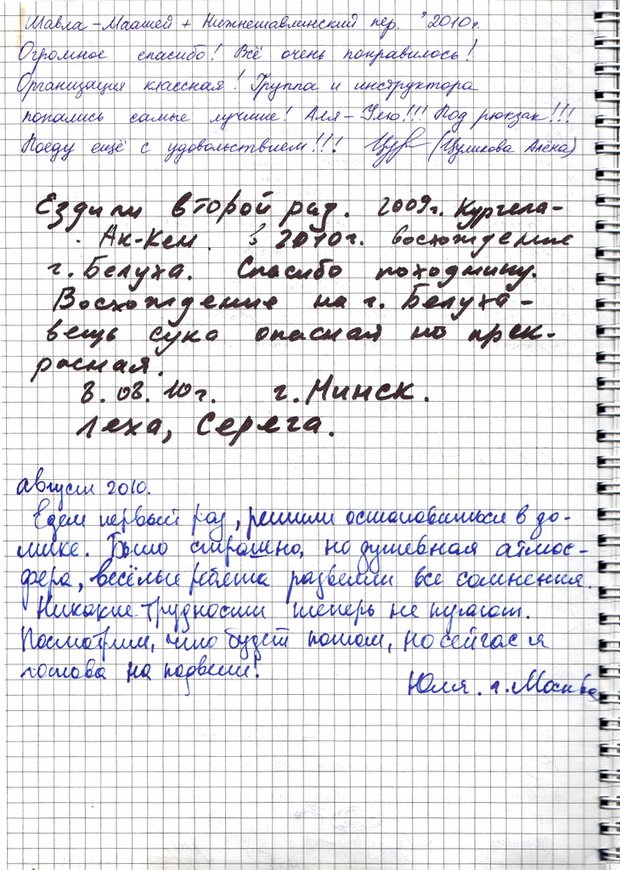 Шавла-Маашей + Нижнешавлинский пер. 2010г.
Огромное спасибо! Всё очень понравилось!
Организация классная! Группа и инструктора
попались самые лучшие! Аля-Улю!!! Под рюкзак!!!
Поеду ещё с удовольствием!!! (Цуликова Алёна)
Ездили второй раз. 2009г. Кургела-
Ак-Кем. в 2010г. восхождение
г. Белуха. Спасибо походнику.
Восхождение на г. Белуха-
вещь сука опасная но прек-
расная.
8.08.10г. г. Минск.
Леха, Серега.
август 2010.
Едем первый раз, решили остановиться в до-
мике. Было страшно, но душевная атмос-
фера, весёлые ребята развеяли все сомнения.
Никакие трудности теперь не пугают.
Посмотрим, что будет потом, но сейчас я
готова на подвиги!
Юля. г. Москва